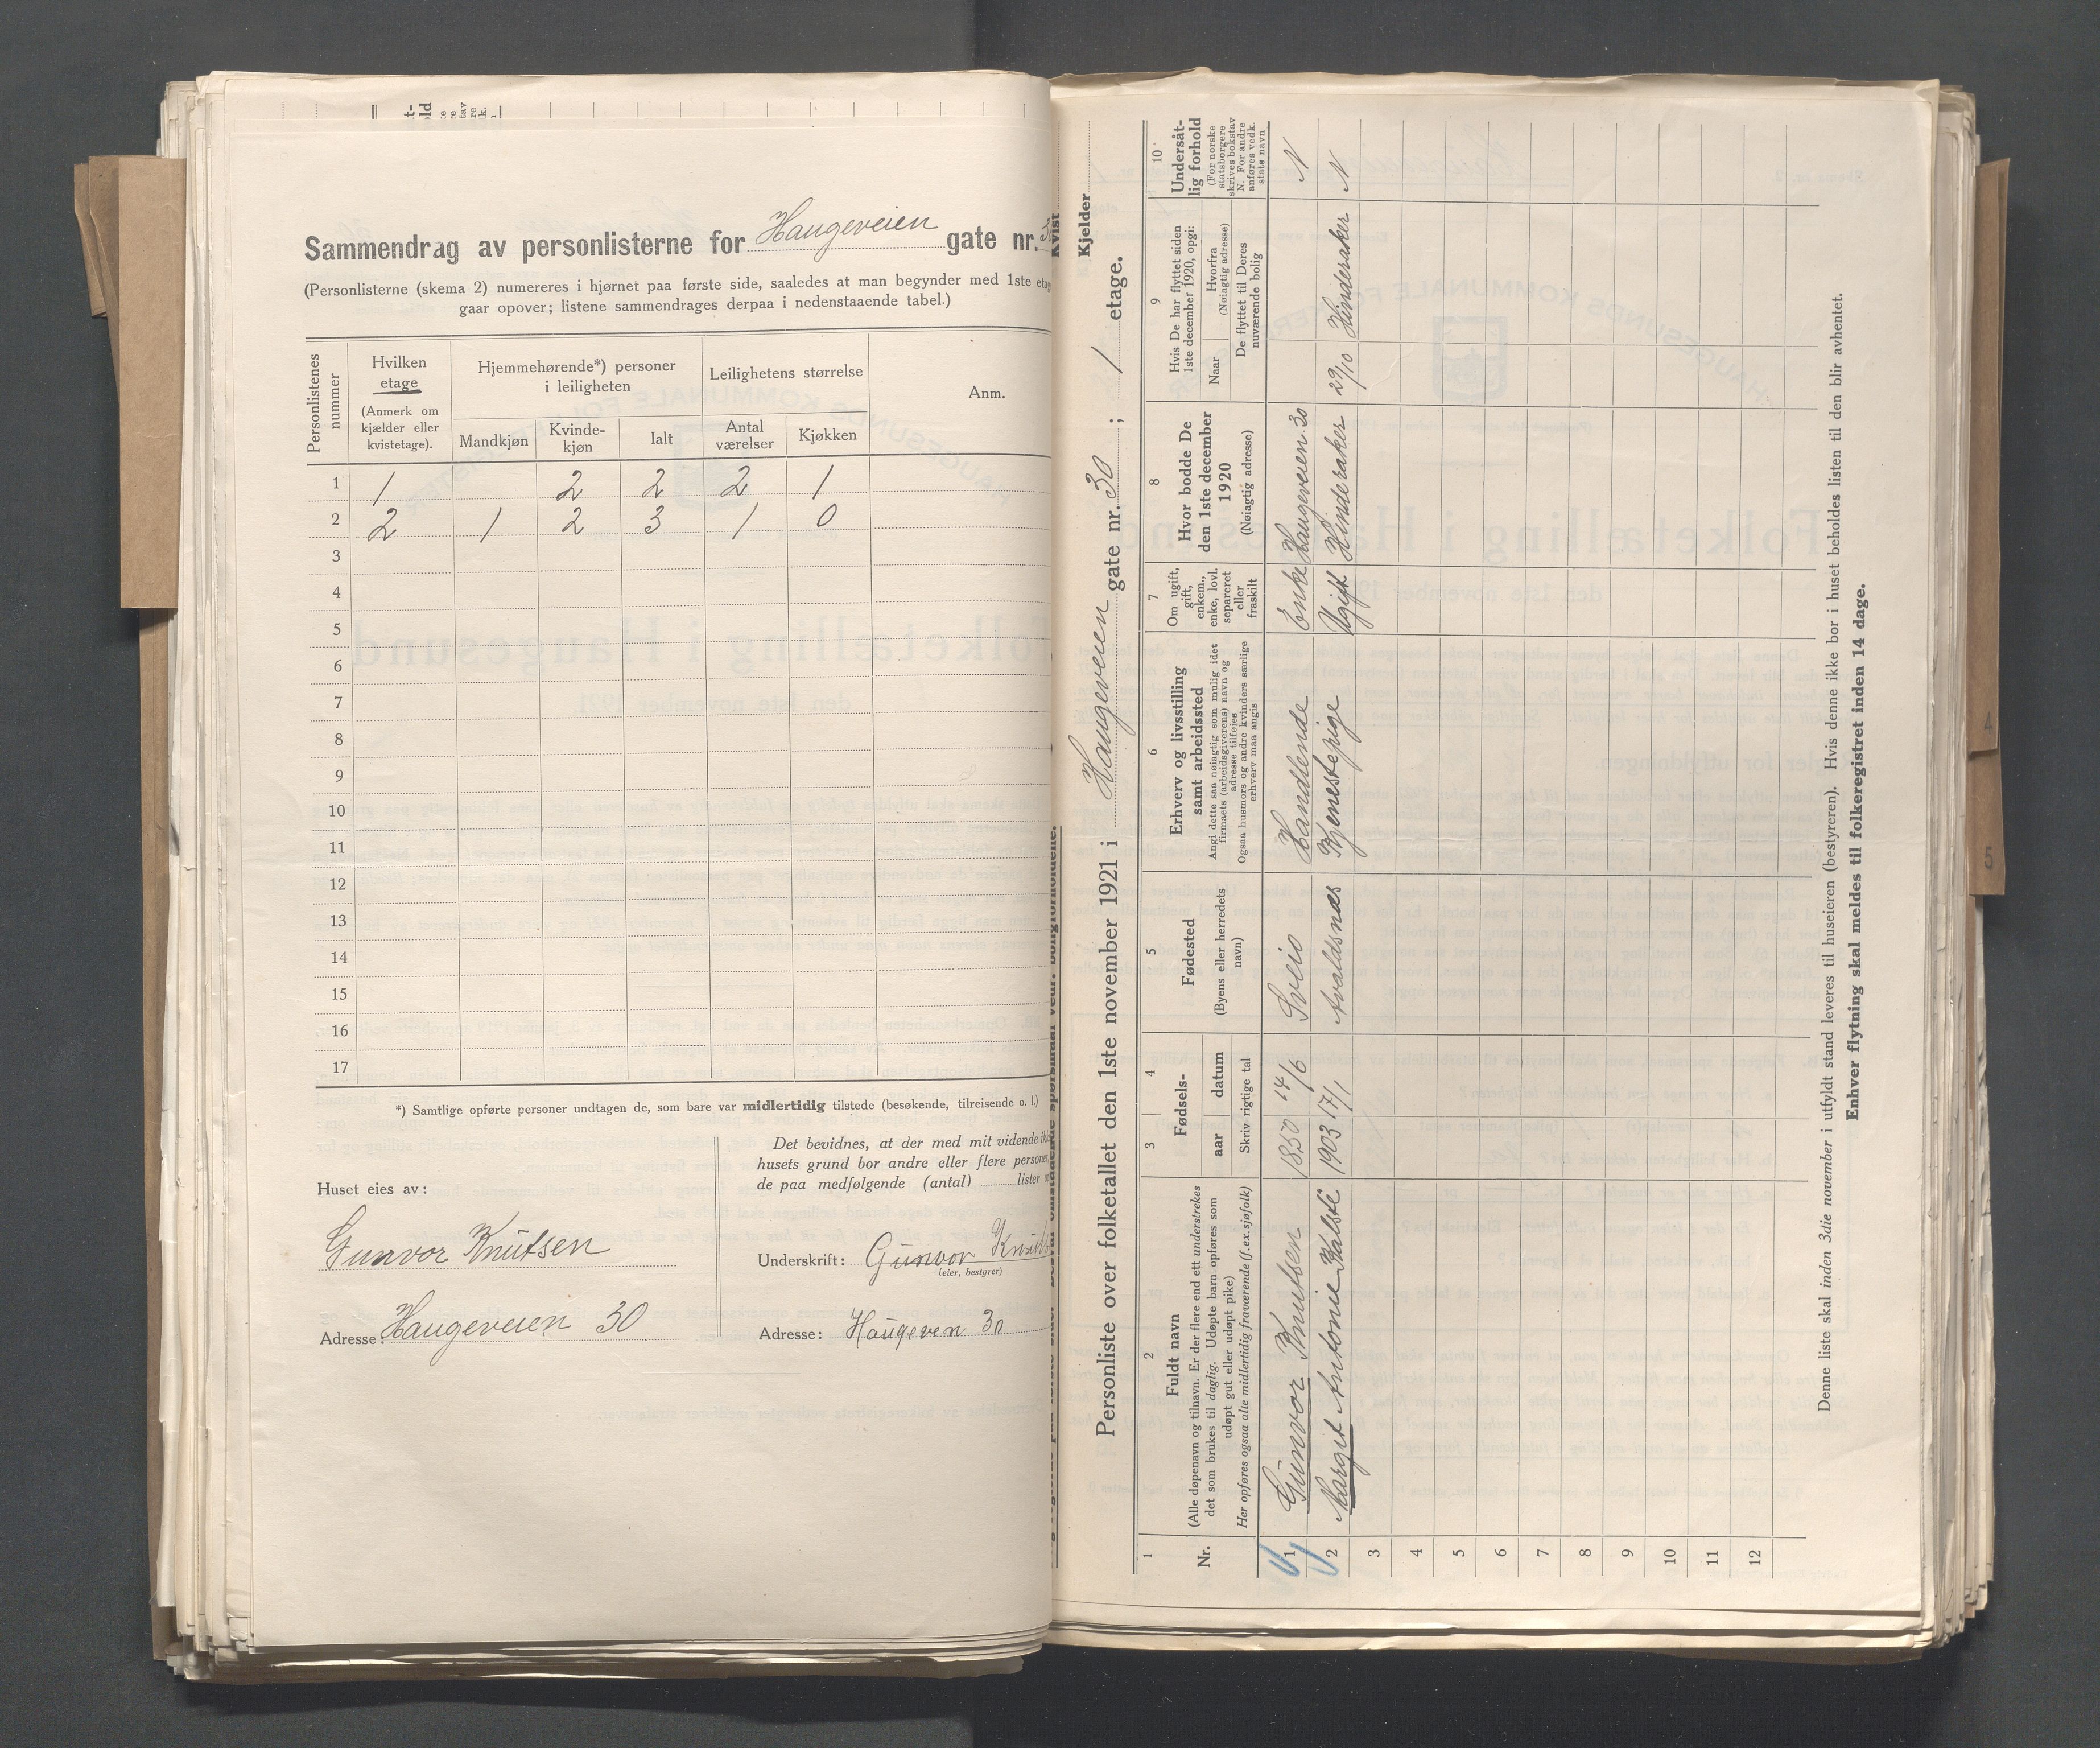 Sammendrag av personlisterne for Haugeveien gate nr. 3
(Personlisterne (skema 2) numereres i hjørnet paa første side, saaledes at man begynder med 1ste etag
gaar opover; listene sammendrages derpaa i nedenstaaende tabel.)
Personlistenes nummer
Hvilken etage (Anmerk om kjælder eller kvistetage).
Hjemmehørende*) personer i leiligheten
Leilighetens størrelse
Anm.
Mandkjøn Kvinde-kjøn Ialt Antal værelser Kjøkken
1 1 2 2 2 1
2 2 1 2 3 1 0
3
4
5
6
7
8
9
10
11
12
13
14
15
16
17
*) Samtlige opførte personer undtagen de, som bare var midlertidig tilstede (besøkende, tilreisende o. l.)
Huset eies av:
Gunvor Knutsen
Adresse: Haugeveien 30
Det bevidnes, at der med mit vidende ikke
husets grund bor andre eller flere personer
de paa medfølgende (antal) lister
Underskrift: Gunvor Knuts
(eier, bestyrer)
Adresse: Haugeven 30
Kvist
Kjelder
Personliste over folketallet den 1ste november 1921 i Haugeveien gate nr. 30; 1 etage.
1 2 3 4 5 6 7 8 9 10
Nr.
Fuldt navn
(Alle døpenavn og tilnavn. Er der flere end ett understrekes
det som brukes til daglig. Udøpte barn opføres som
udøpt gut eller udøpt pike)
Her opføres ogsaa alle midlertidig fraværende (f.ex. sjøfolk)
Fødsels-
aar datum
Skriv rigtige tal
Fødested
(Byens eller herredets navn)
Erhverv og livsstilling
samt arbeidssted
Angi dette saa nøiagtig som mulig idet
firmaets (arbeidsgiverens) navn og
adresse tilføies
Ogsaa husmors og andre kvinders særlige
erhverv maa angis
Om ugift,
gift,
enkem.,
enke, lovl.
separeret
eller
fraskilt
Hvor bodde De
den 1ste december
1920
(Nøiagtig adresse)
Hvis De har flyttet siden
1ste december 1920, opgi:
Naar
Hvorfra
(Nøiagtig adresse)
De flyttet til Deres
nuværende bolig
Undersåt-
lig forhold
(For norske
statsborgere
skrives bokstav
N. For andre
anføres vedk.
stats navn
1 Gunvor Knutsen 1850 14/6 Sveio Handlende Enke Haugeveien 30 N
2 Margit Antonie Kalstø 1903 17/1 Avaldsnæs Tjenestepige Ugift Hinderaker 29/10 Hinderaker N
3
4
5
6
7
8
9
10
11
12
Denne liste skal inden 3die november i utfyldt stand leveres til huseieren (bestyreren). Hvis denne ikke bor i huset beholdes listen til den blir avhentet.
Enhver flytning skal meldes til folkeregistret inden 14 dage.
4
5